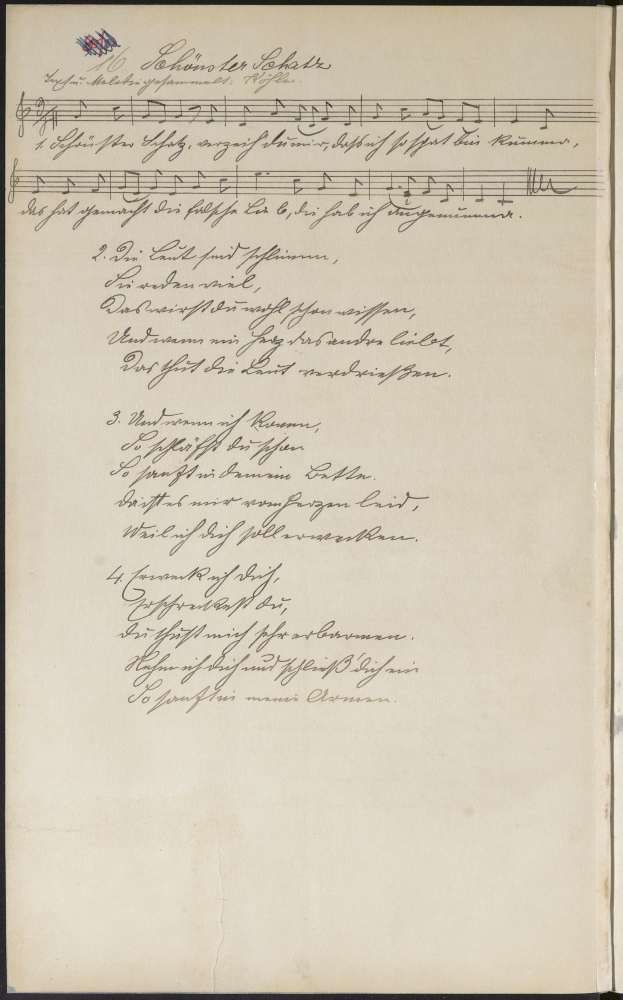 16. Schönster Schatz
Text u. Melodie gesammelt: Köhler.
1. Schönster Schatz, verzeih du mir, dass ich so spät bin kumma,
das hat gemacht die falsche Lieb, die hab ich angenumma.
2. Die Leut sind schlimm,
Sie reden viel,
Das wirst du wohl schon wissen,
Und wenn ein Herz das andre liebt,
Das thut die Leut verdrießen.
3. Und wenn ich komm,
So schläfst du schon
So sanft in deinem Bette.
Da ist es mir vom Herzen leid,
Weil ich dich soll erwecken.
4. Erweck ich dich,
Erschreckest du,
Du thust mich sehr erbarmen.
Nehm ich dich und schließ' dich ein
So sanft in meine Armen.